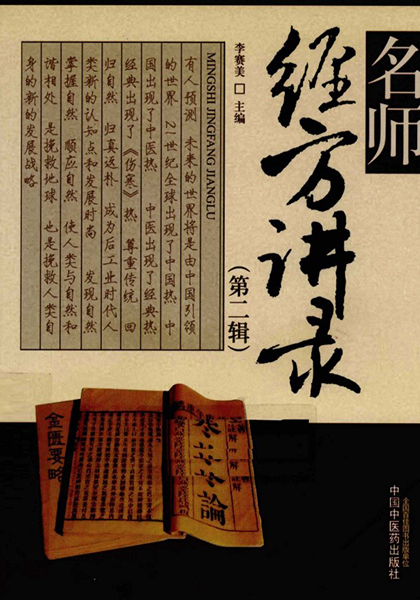 名师
经方讲录
(第二辑)
李赛美 □ 主编
MINGSHI JINGFANG JIANGLU
有人预测 未来的世界将是由中国引领
的世界 21世纪全球出现了中国热 中
国出现了中医热 中医出现了经典热
经典出现了《伤寒》热 尊重传统 回
归自然 归真返朴 成为后工业时代人
类新的认知点和发展时尚 发现自然
掌握自然 顺应自然 使人类与自然和
谐相处 是挽救地球 也是挽救人类自
身的新的发展战略
金匮要略
寒论
全国百佳图书出版单位
中国中医药出版社